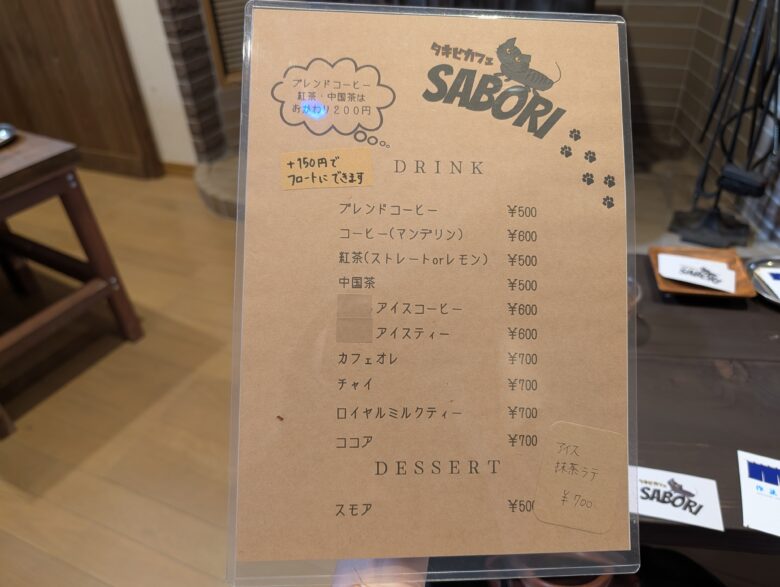 タキビカフェ
SABORI
ブレンドコーヒー
紅茶・中国茶は
おかわり200円
+150円で
フロートにできます
DRINK
ブレンドコーヒー ¥500
コーヒー(マンデリン) ¥600
紅茶(ストレートorレモン) ¥500
中国茶 ¥500
アイスコーヒー ¥600
アイスティー ¥600
カフェオレ ¥700
チャイ ¥700
ロイヤルミルクティー ¥700
ココア ¥700
DESSERT
スモア ¥500
アイス
抹茶ラテ
¥700
タキビカフェ
SABORI